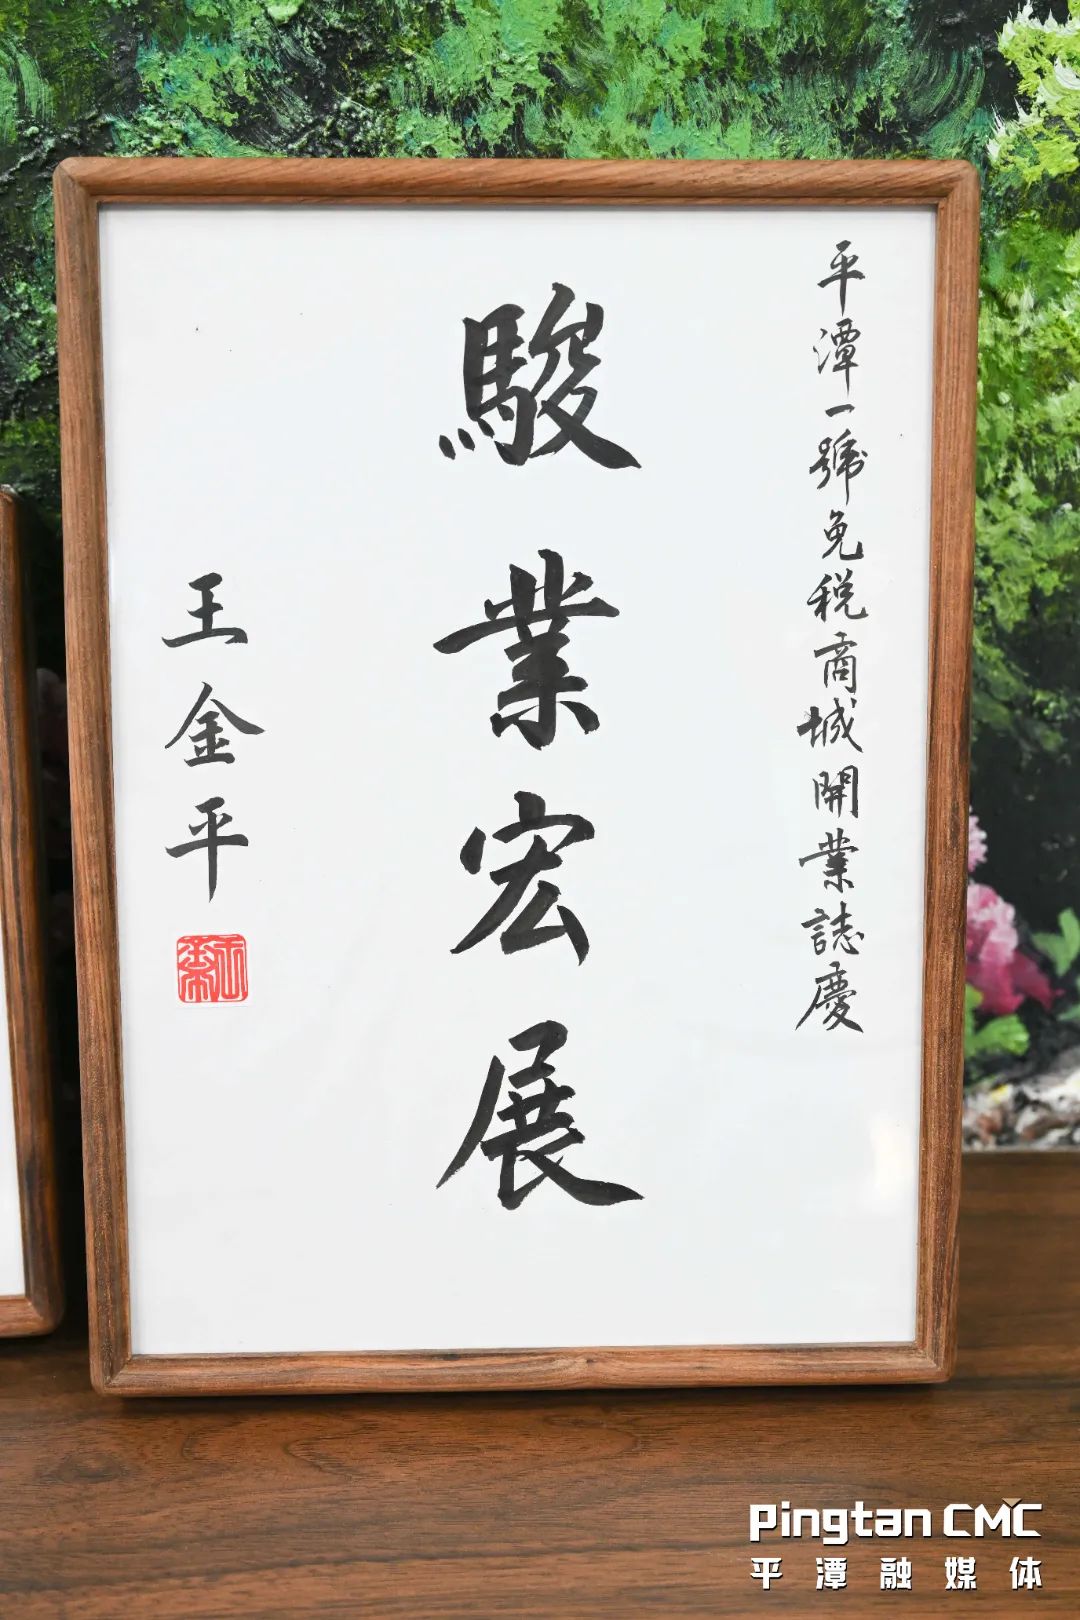 平潭一號免税商城開業誌慶
駿業宏展
王金平
Pingtan CMC
平潭融媒体